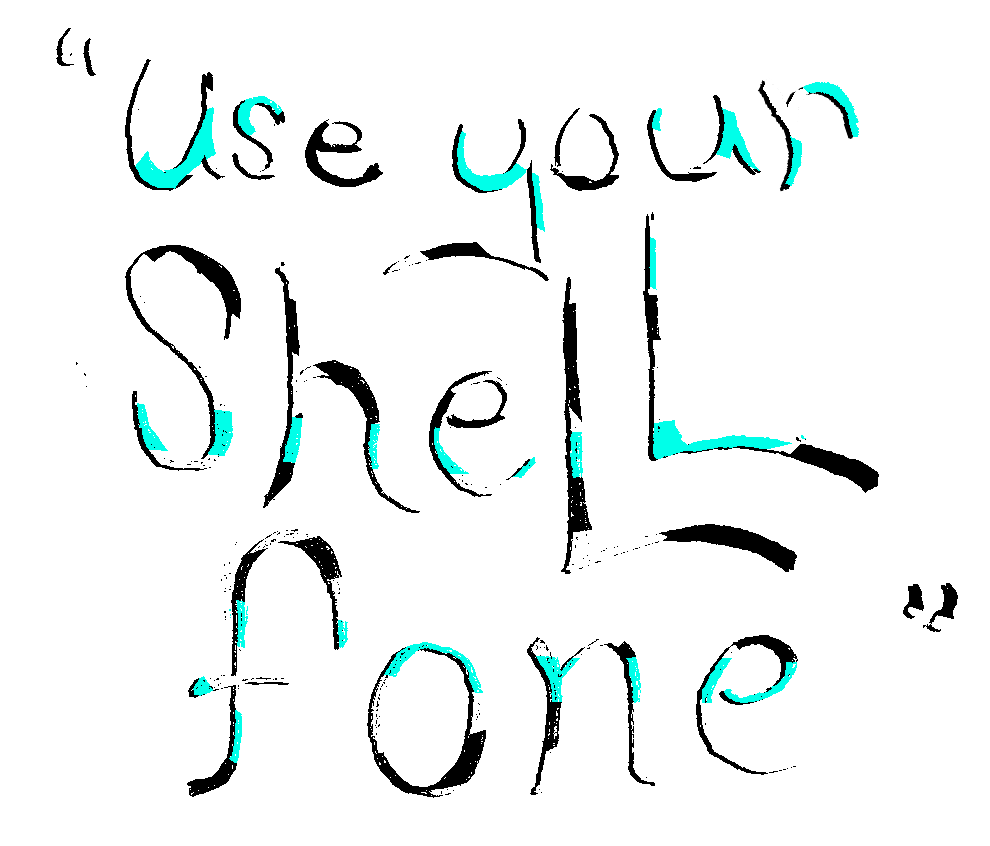 "use your
ShelL
fone"